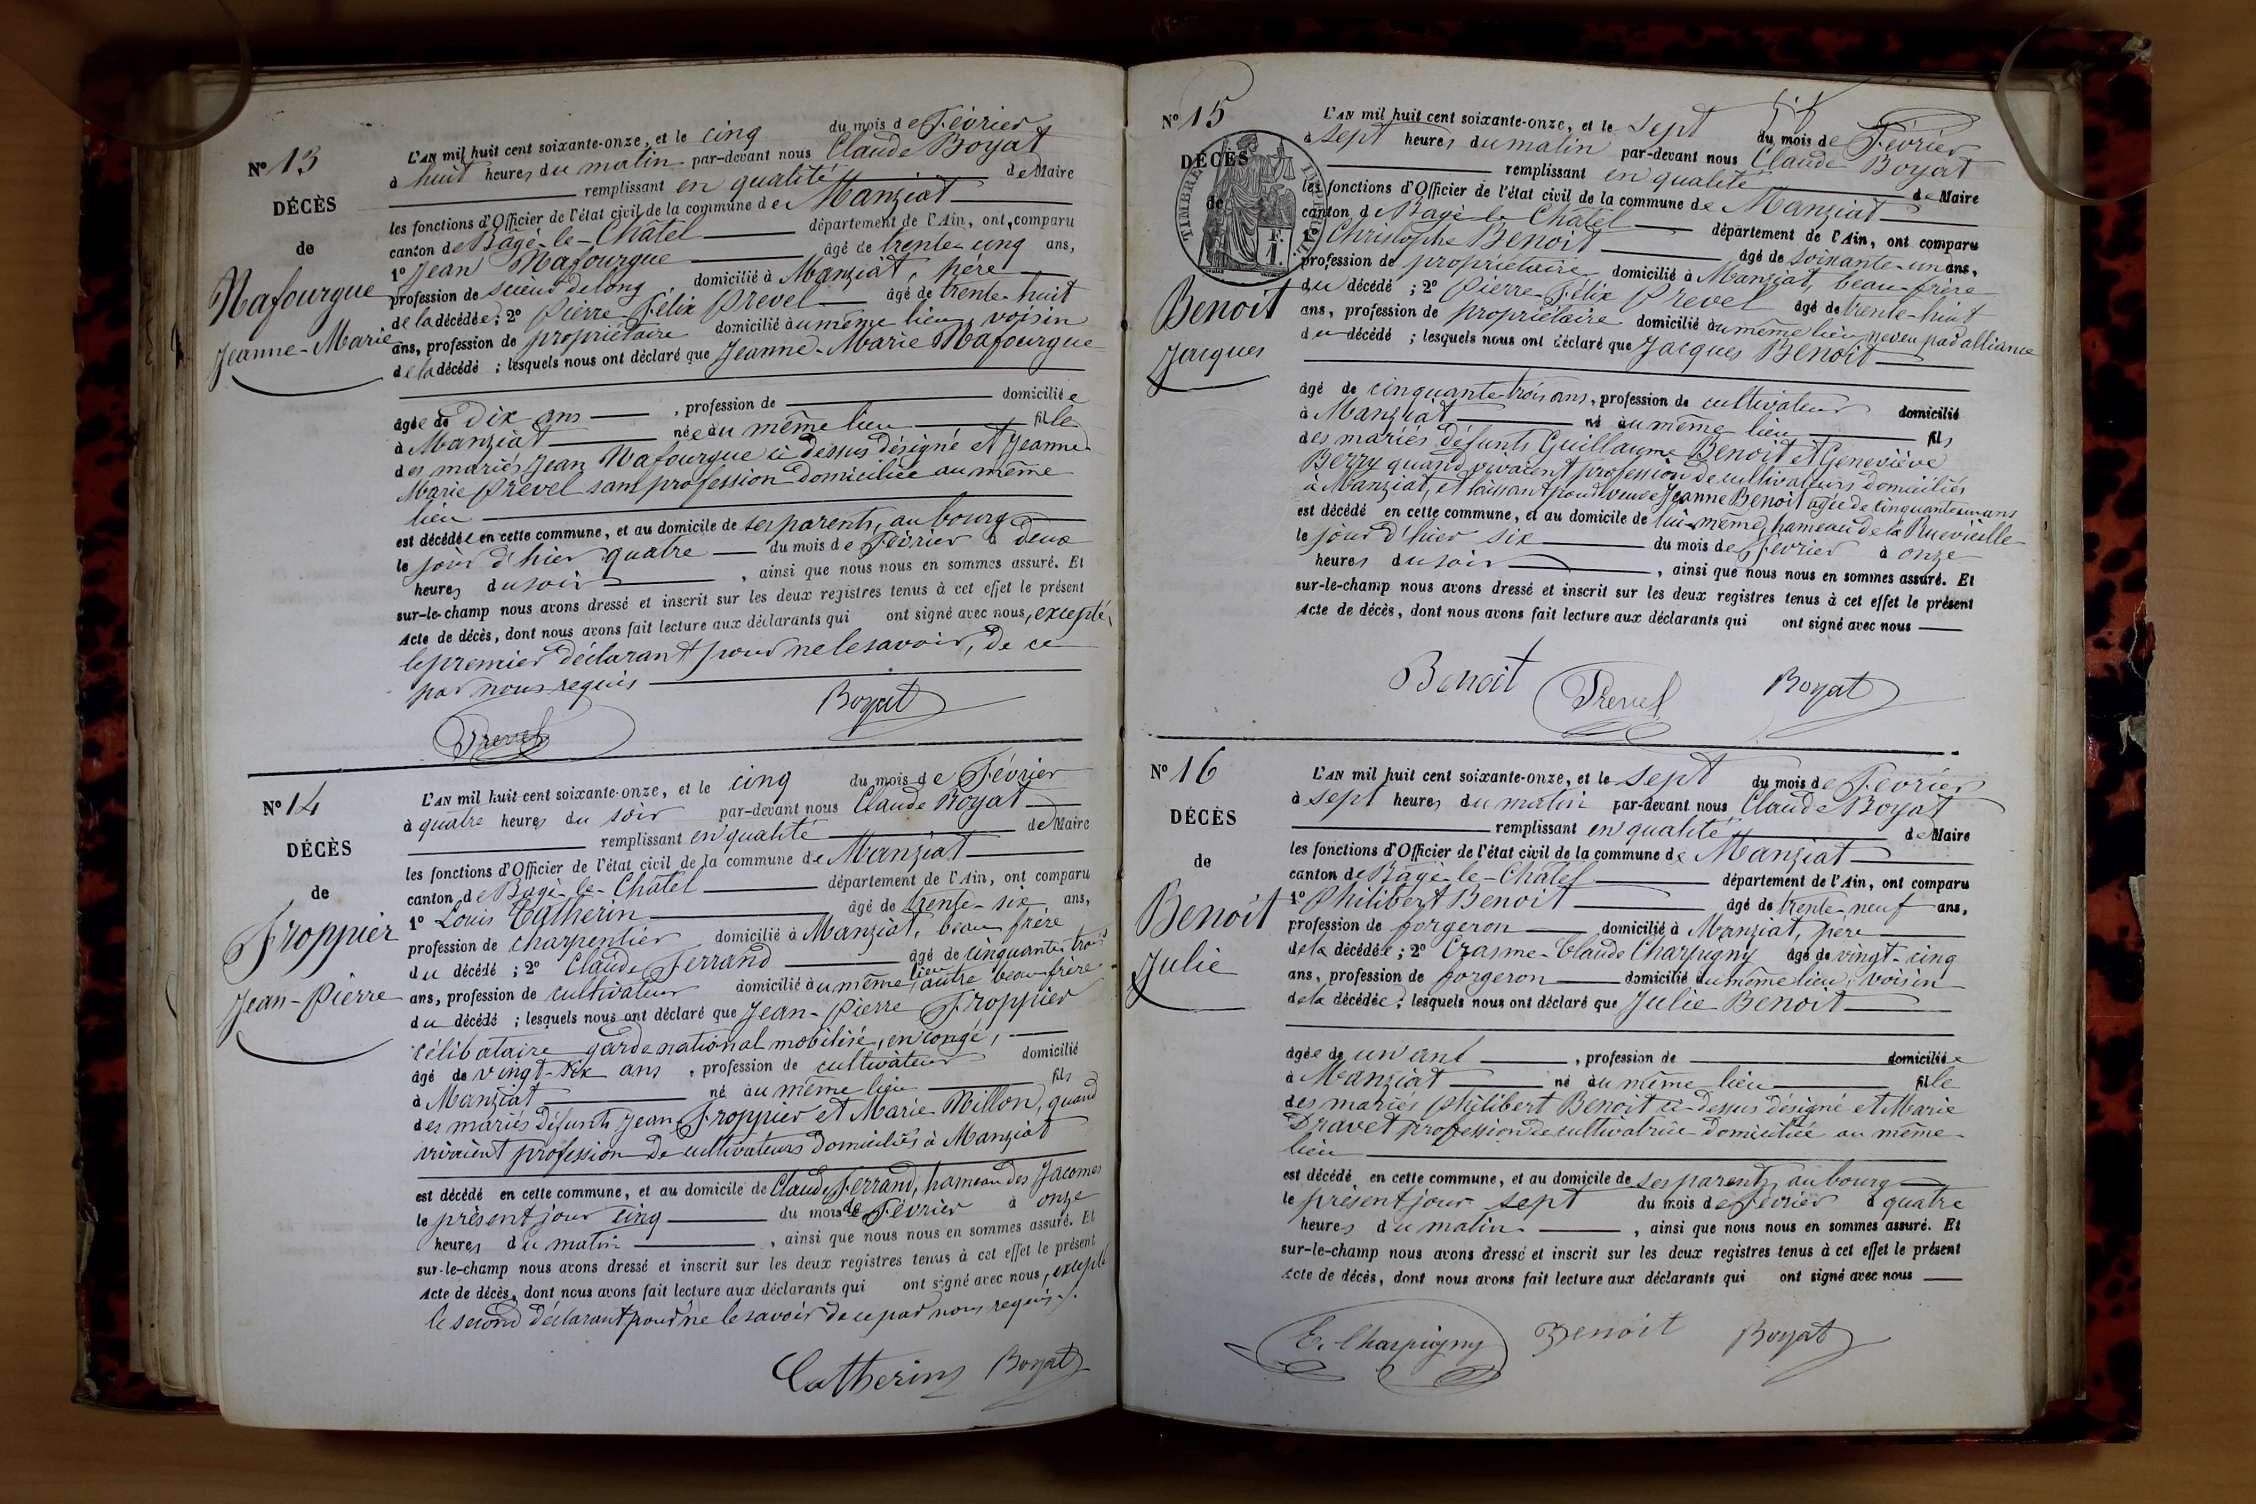 N° 13
DÉCÈS
de
Nafourgue
Jeanne-Marie
L'AN mil huit cent soixante-onze, et le cinq du mois de Février
à huit heures du matin par-devant nous Claude Boyat
remplissant en qualité de Maire
les fonctions d'Officier de l'état civil de la commune de Manziat
canton de Bagé-le-Châtel département de l'Ain, ont comparu
1° Jean Nafourgue âgé de trente-cinq ans,
profession de scieur de long domicilié à Manziat, père
de la décédée ; 2° Pierre Félix Prevel âgé de trente-huit
ans, profession de propriétaire domicilié au même lieu, voisin
de la décédé ; lesquels nous ont déclaré que Jeanne-Marie Nafourgue
âgée de dix ans , profession de domiciliée
à Manziat née au même lieu fille
des mariés Jean Nafourgue ci-dessus désigné et Jeanne
Marie Prevel sans profession domiciliée au même
lieu
est décédée en cette commune, et au domicile de ses parents, au bourg
le jour d'hier quatre du mois de Février à deux
heures du soir , ainsi que nous nous en sommes assuré. Et
sur-le-champ nous avons dressé et inscrit sur les deux registres tenus à cet effet le présent
Acte de décès, dont nous avons fait lecture aux déclarants qui ont signé avec nous, excepté,
le premier déclarant pour ne le savoir, de ce
par nous requis
Prevel Boyat
N° 14
DÉCÈS
de
Froppier
Jean-Pierre
L'AN mil huit cent soixante-onze, et le cinq du mois de Février
à quatre heures du soir par-devant nous Claude Boyat
remplissant en qualité de Maire
les fonctions d'Officier de l'état civil de la commune de Manziat
canton de Bagé-le-Châtel département de l'Ain, ont comparu
1° Louis Catherin âgé de trente-six ans,
profession de charpentier domicilié à Manziat, beau frère
du décédé ; 2° Claude Ferrand âgé de cinquante-trois
ans, profession de cultivateur domicilié au même lieu autre beau-frère
du décédé ; lesquels nous ont déclaré que Jean-Pierre Froppier
célibataire garde national mobilisé, en congé,
âgé de vingt-six ans , profession de cultivateur domicilié
à Manziat né au même lieu fils
des mariés défunts Jean Froppier et Marie Nillon, quand
vivaient profession de cultivateurs domiciliés à Manziat
est décédé en cette commune, et au domicile de Claude Ferrand, hameau des Jacomes
le présent jour cinq du mois de Février à onze
heures du matin , ainsi que nous nous en sommes assuré. Et
sur-le-champ nous avons dressé et inscrit sur les deux registres tenus à cet effet le présent
Acte de décès, dont nous avons fait lecture aux déclarants qui ont signé avec nous, excepté
le second déclarant pour ne le savoir de ce par nous requis.
Catherin Boyat
N° 15
DÉCÈS
de
Benoit
Jacques
TIMBRE IMPERIAL
F.
1.
L'AN mil huit cent soixante-onze, et le sept du mois de Février
à sept heures du matin par-devant nous Claude Boyat
remplissant en qualité de Maire
les fonctions d'Officier de l'état civil de la commune de Manziat
canton de Bagé-le-Châtel département de l'Ain, ont comparu
1° Christophe Benoit âgé de soixante-un ans,
profession de propriétaire domicilié à Manziat, beau-frère
du décédé ; 2° Pierre-Félix Prevel âgé de trente-huit
ans, profession de propriétaire domicilié au même lieu neveu par alliance
du décédé ; lesquels nous ont déclaré que Jacques Benoit
âgé de cinquante trois ans, profession de cultivateur domicilié
à Manziat né au même lieu fils
des mariés défunts Guillaume Benoit et Geneviève
Berry quand vivaient profession de cultivateurs domiciliés
à Manziat, et laissant pour veuve Jeanne Benoit agée de cinquante un ans
est décédé en cette commune, et au domicile de lui-même, hameau de la Ruevieille
le jour d'hier six du mois de Février à onze
heures du soir , ainsi que nous nous en sommes assuré. Et
sur-le-champ nous avons dressé et inscrit sur les deux registres tenus à cet effet le présent
Acte de décès, dont nous avons fait lecture aux déclarants qui ont signé avec nous
Benoit Prevel Boyat
N° 16
DÉCÈS
de
Benoit
Julie
L'AN mil huit cent soixante-onze, et le sept du mois de Février
à sept heures du matin par-devant nous Claude Boyat
remplissant en qualité de Maire
les fonctions d'Officier de l'état civil de la commune de Manziat
canton de Bagé-le-Châtel département de l'Ain, ont comparu
1° Philibert Benoit âgé de trente-neuf ans,
profession de forgeron domicilié à Manziat, père
de la décédée ; 2° Erasme-Claude Charpigny âgé de vingt-cinq
ans, profession de forgeron domicilié au même lieu, voisin
de la décédée ; lesquels nous ont déclaré que Julie Benoit
âgée de un an , profession de domiciliée
à Manziat né au même lieu fille
des mariés Philibert Benoit ci-dessus désigné et Marie
Dravet profession de cultivatrice domiciliée au même
lieu
est décédé en cette commune, et au domicile de ses parents, au bourg
le présent jour sept du mois de Février à quatre
heures du matin , ainsi que nous nous en sommes assuré. Et
sur-le-champ nous avons dressé et inscrit sur les deux registres tenus à cet effet le présent
Acte de décès, dont nous avons fait lecture aux déclarants qui ont signé avec nous
E. Charpigny Benoit Boyat